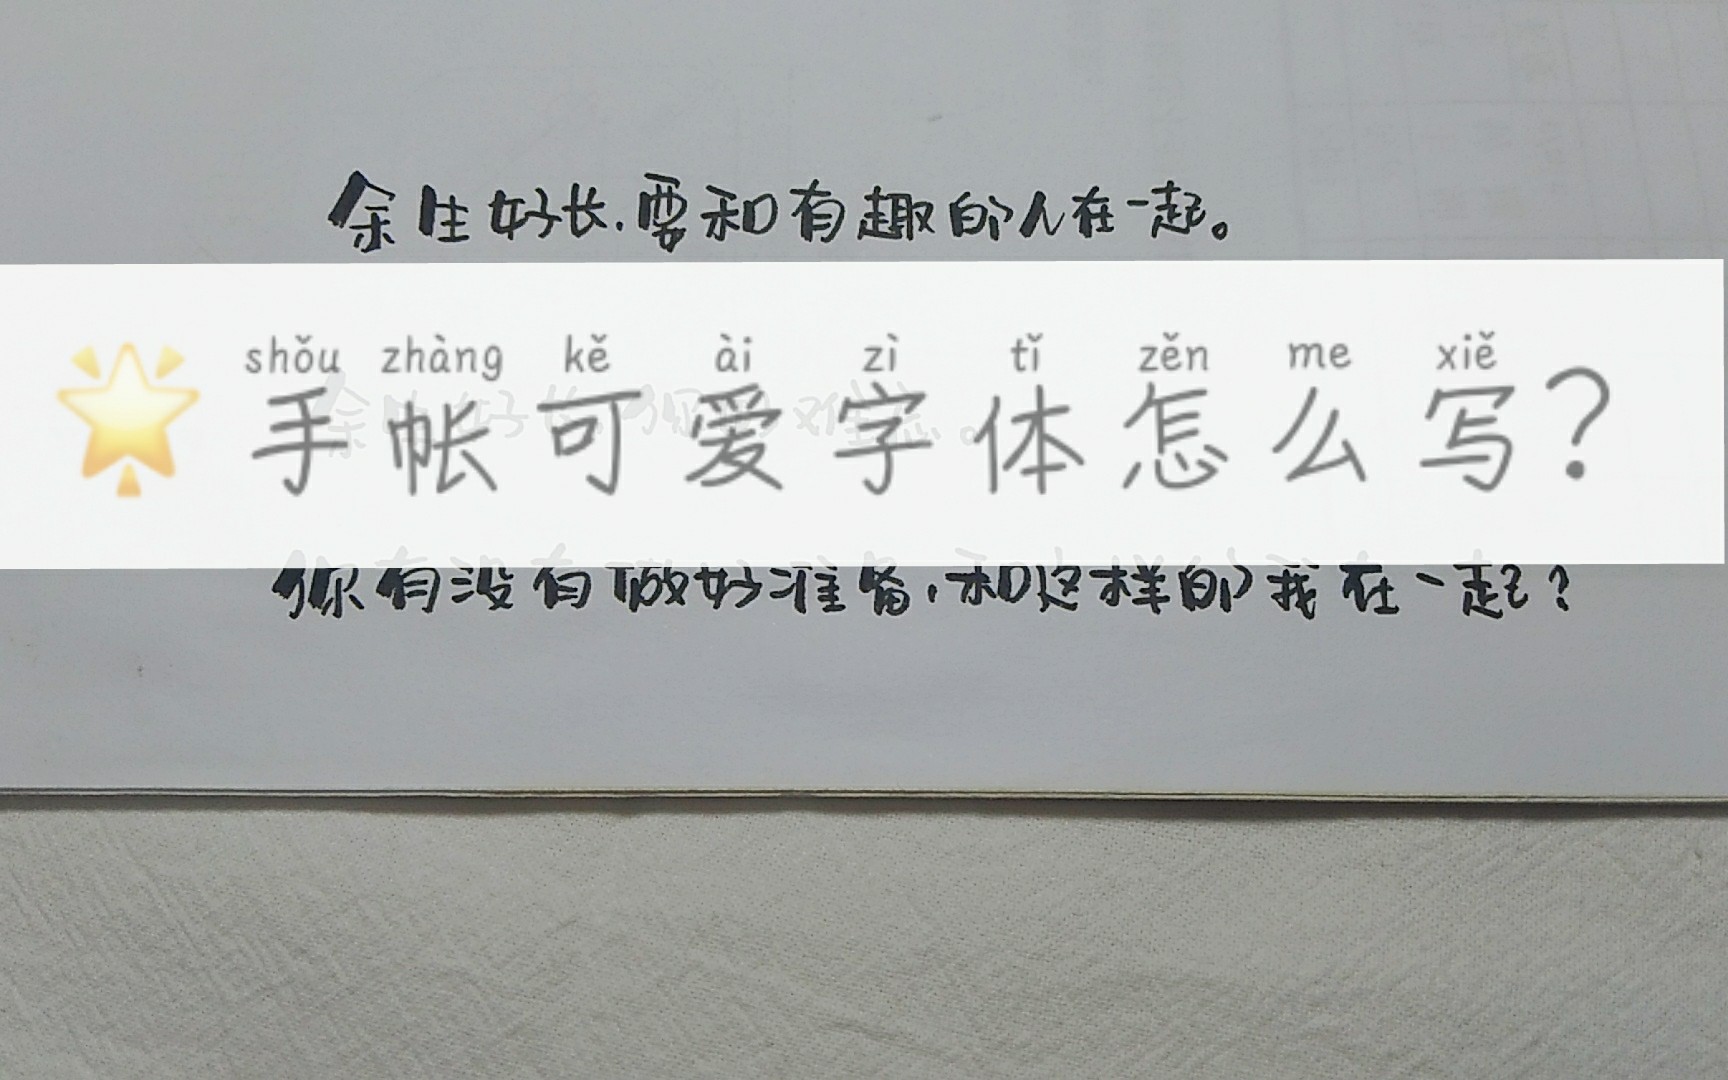 余生好长.要和有趣的人在一起。
shǒu zhàng kě ài zì tǐ zěn me xiě
手帐可爱字体怎么写?
余生好长,你好难忘。
你有没有做好准备,和这样的我在一起?